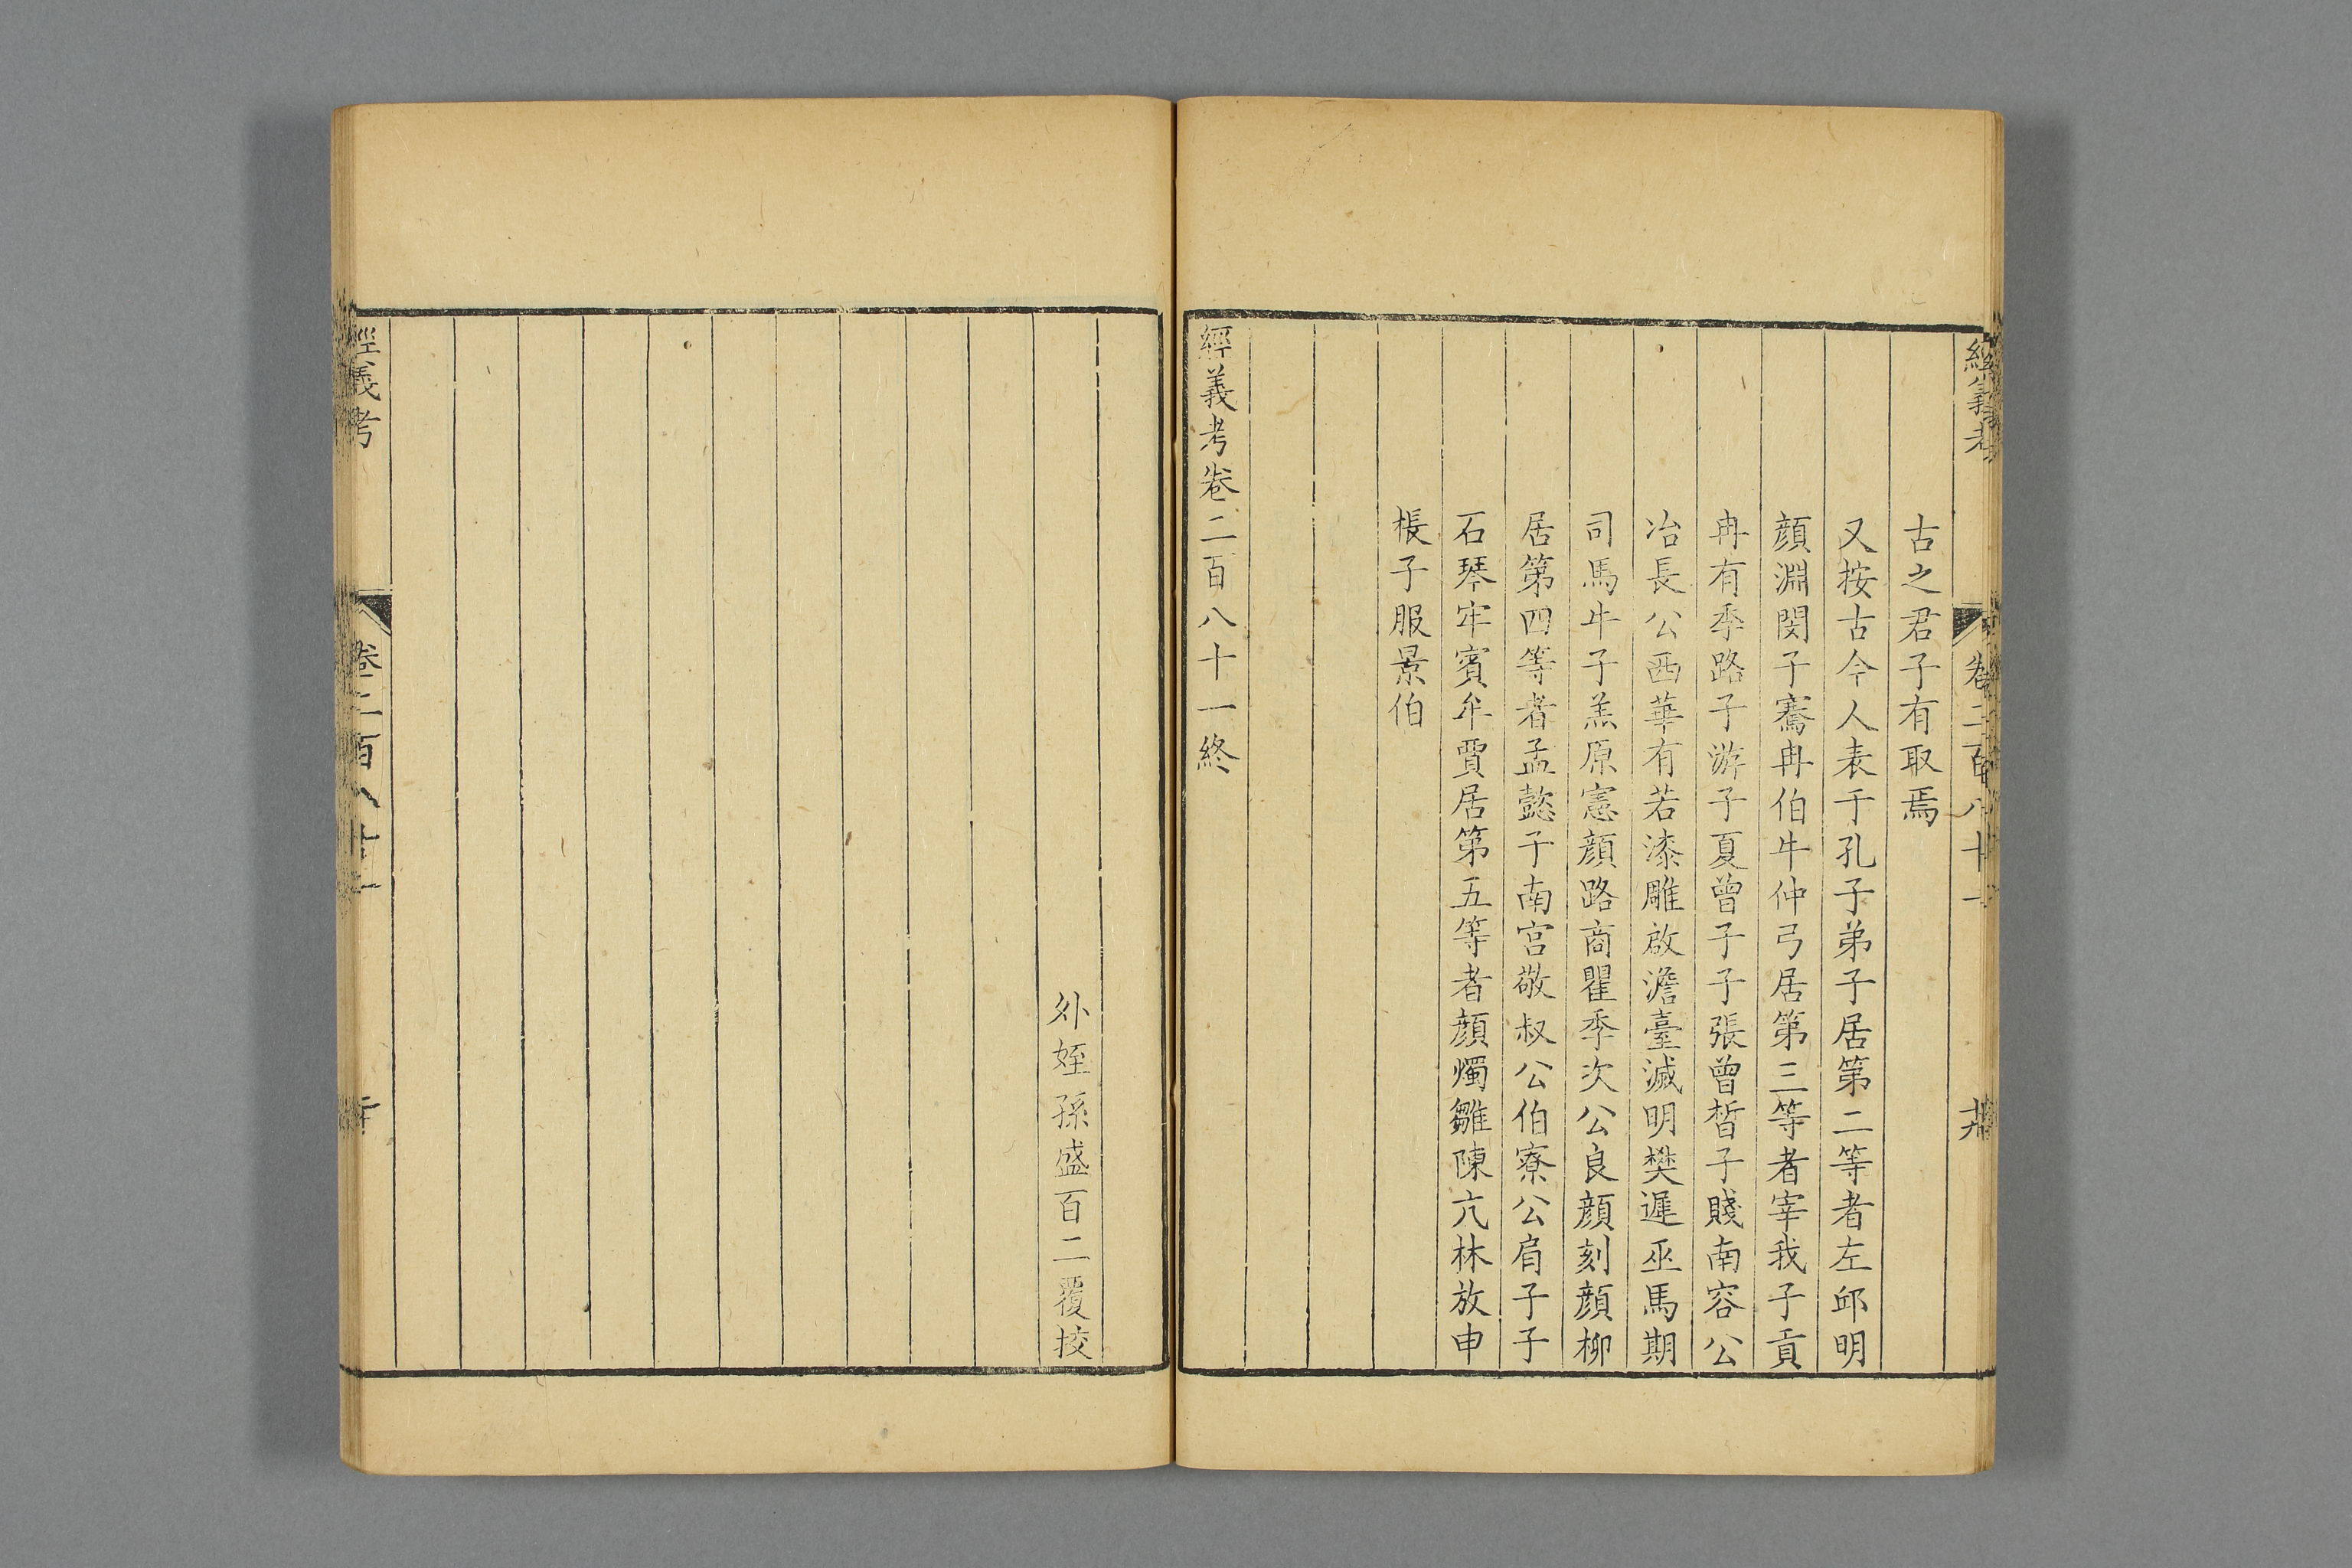 經義考
卷二百八十一
古之君子有取焉
又按古今人表于孔子弟子居第二等者左邱明
顏淵閔子騫冉伯牛仲弓居第三等者宰我子貢
冉有季路子游子夏曾子子張曾晳子賤南容公
冶長公西華有若漆雕啟澹臺滅明樊遲巫馬期
司馬牛子羔原憲顏路商瞿季次公良顏刻顏柳
居第四等者孟懿子南宫敬叔公伯寮公肩子子
石琴牢賓牟賈居第五等者顏燭雛陳亢林放申
棖子服景伯
經義考卷二百八十一終
外姪孫盛百二覆挍
經義考
卷二百八十一